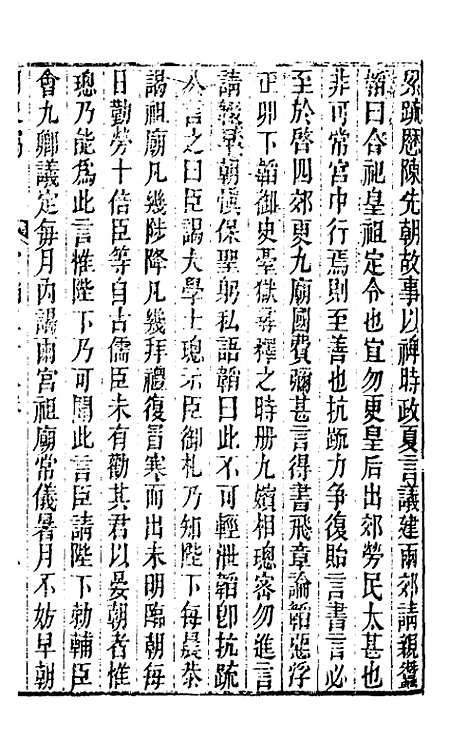 眾疏歴陳先朝故事以裨時政夏言議建兩郊請親蠶
韜曰合祀皇祖定令也宜勿更皇后出郊勞民太甚也
非可常宮中行焉則至善也抗疏力争復貽言書言必
至於啓四郊更九廟國費彌甚言得書飛章論韜惡浮
正卯下韜御史臺獄尋釋之時册九嬪相璁密勿進言
請輟早朝慎保聖躬私語韜曰此不可輕泄韜卽抗疏
入言之曰臣謁大學士璁示臣御札乃知陛下每晨恭
謁祖廟凡幾陟降凡幾拜禮復冒寒而出未明臨朝每
日勤勞十倍臣等自古儒臣未有勸其君以晏朝者惟
璁乃能爲此言惟陛下乃可聞此言臣請陛下勅輔臣
會九卿議定每月內謁兩宮祖廟常儀暑月不妨早朝